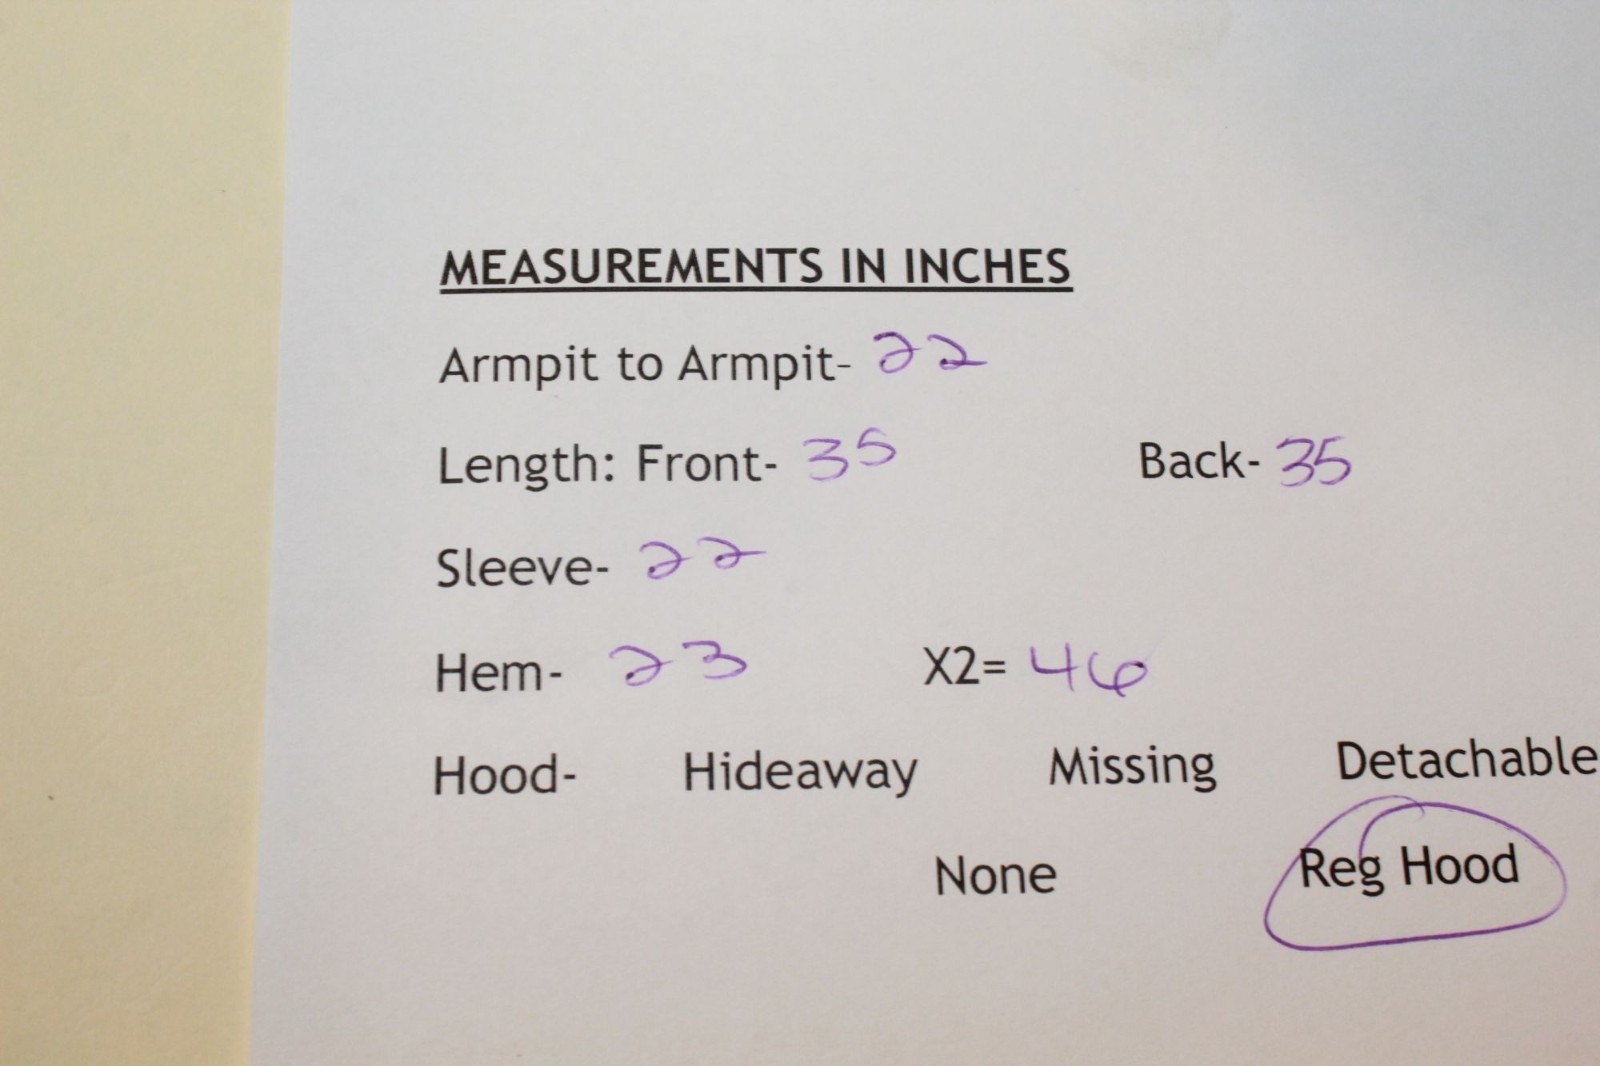 MEASUREMENTS IN INCHES
Armpit to Armpit- 22
Length: Front- 35 Back- 35
Sleeve- 22
Hem- 23 X2= 46
Hood- Hideaway Missing Detachable
None Reg Hood